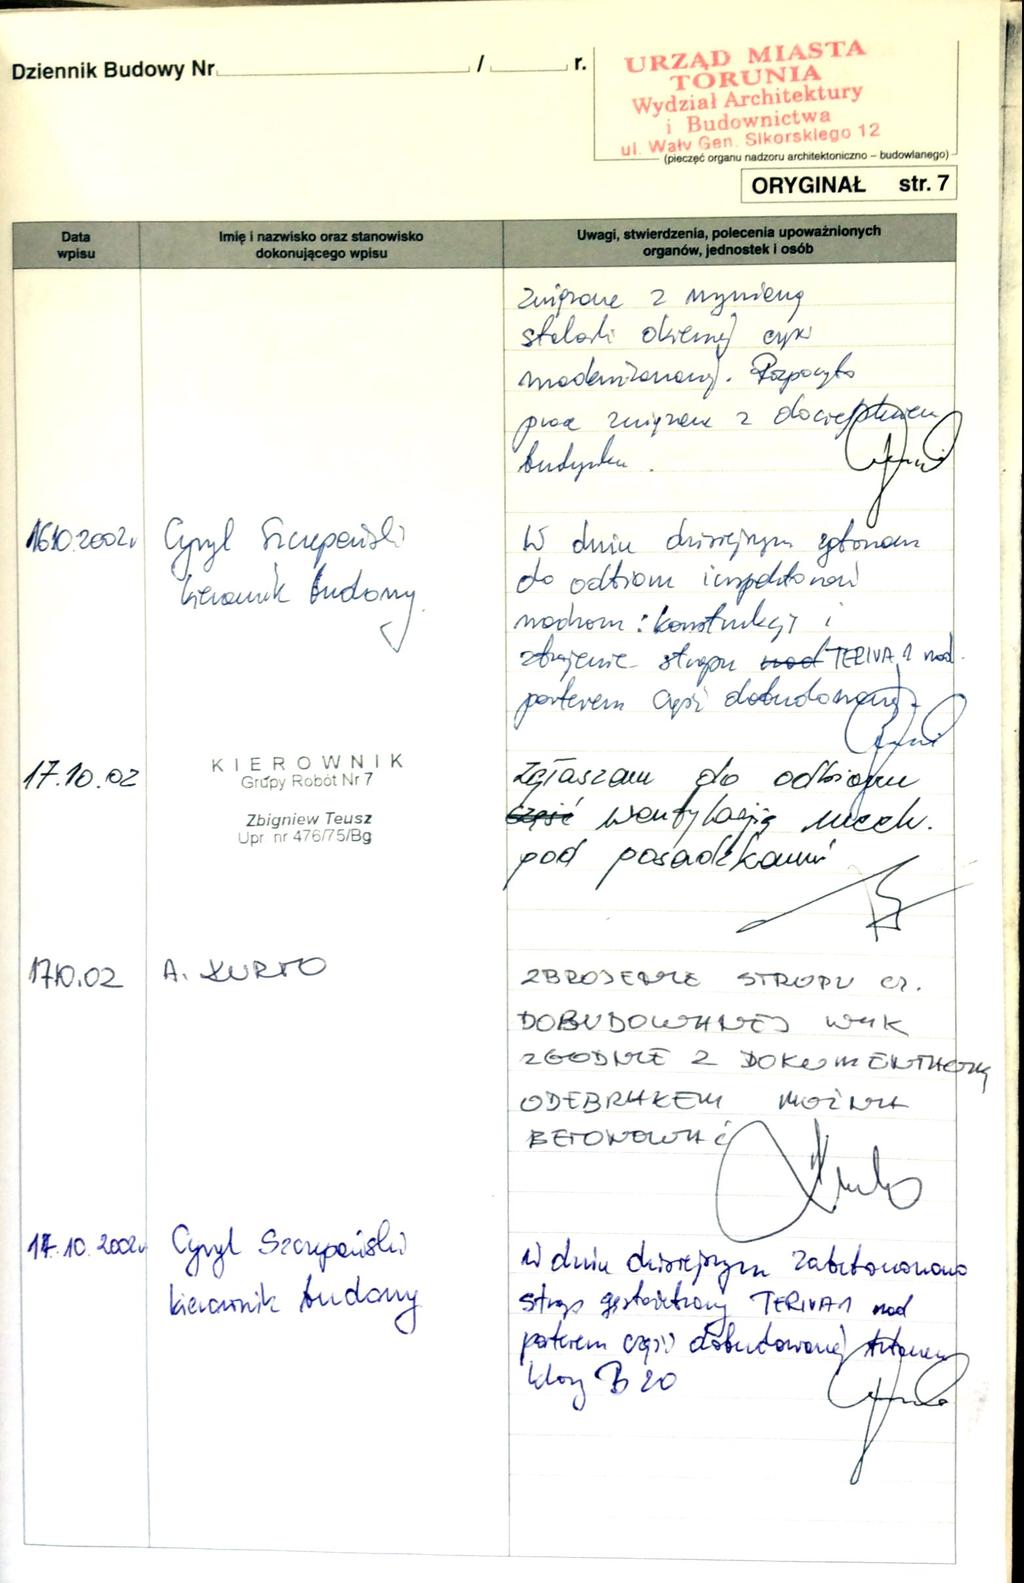 Dziennik Budowy Nr / r.
URZĄD MIASTA
TORUNIA
Wydział Architektury
i Budownictwa
ul. Wały Gen. Sikorskiego 12
(pieczęć organu nadzoru architektoniczno – budowlanego)
ORYGINAŁ str. 7
Data
wpisu
Imię i nazwisko oraz stanowisko
dokonującego wpisu
Uwagi, stwierdzenia, polecenia upoważnionych
organów, jednostek i osób
związane z wymianą
stolarki okiennej części
modernizowanej. Rozpoczęto
prace związane z dociepleniem
budynku.
16.10.2002r
Cyryl Szczepański
kierownik budowy
W dniu dzisiejszym zgłoszono
do odbioru inspektorowi
nadzoru: konstrukcję i
zbrojenie stropu nad TERIVA 1 nad
parterem części dobudowanej.
17.10.02
KIEROWNIK
Grupy Robót Nr 7
Zbigniew Teusz
Upr. nr 476/75/Bg
Zgłaszam do odbioru
część wentylację mech.
pod posadzkami
17.10.02
A. KURTO
ZBROJENIE STROPU CZ.
DOBUDOWANEJ WYK
ZGODNIE Z DOKUMENTACJĄ
ODEBRAŁEM MOŻNA
BETONOWAĆ
17.10.2002r
Cyryl Szczepański
kierownik budowy
W dniu dzisiejszym zabetonowano
strop gęstożebrowy TERIVA 1 nad
parterem części dobudowanej betonem
klasy B 20